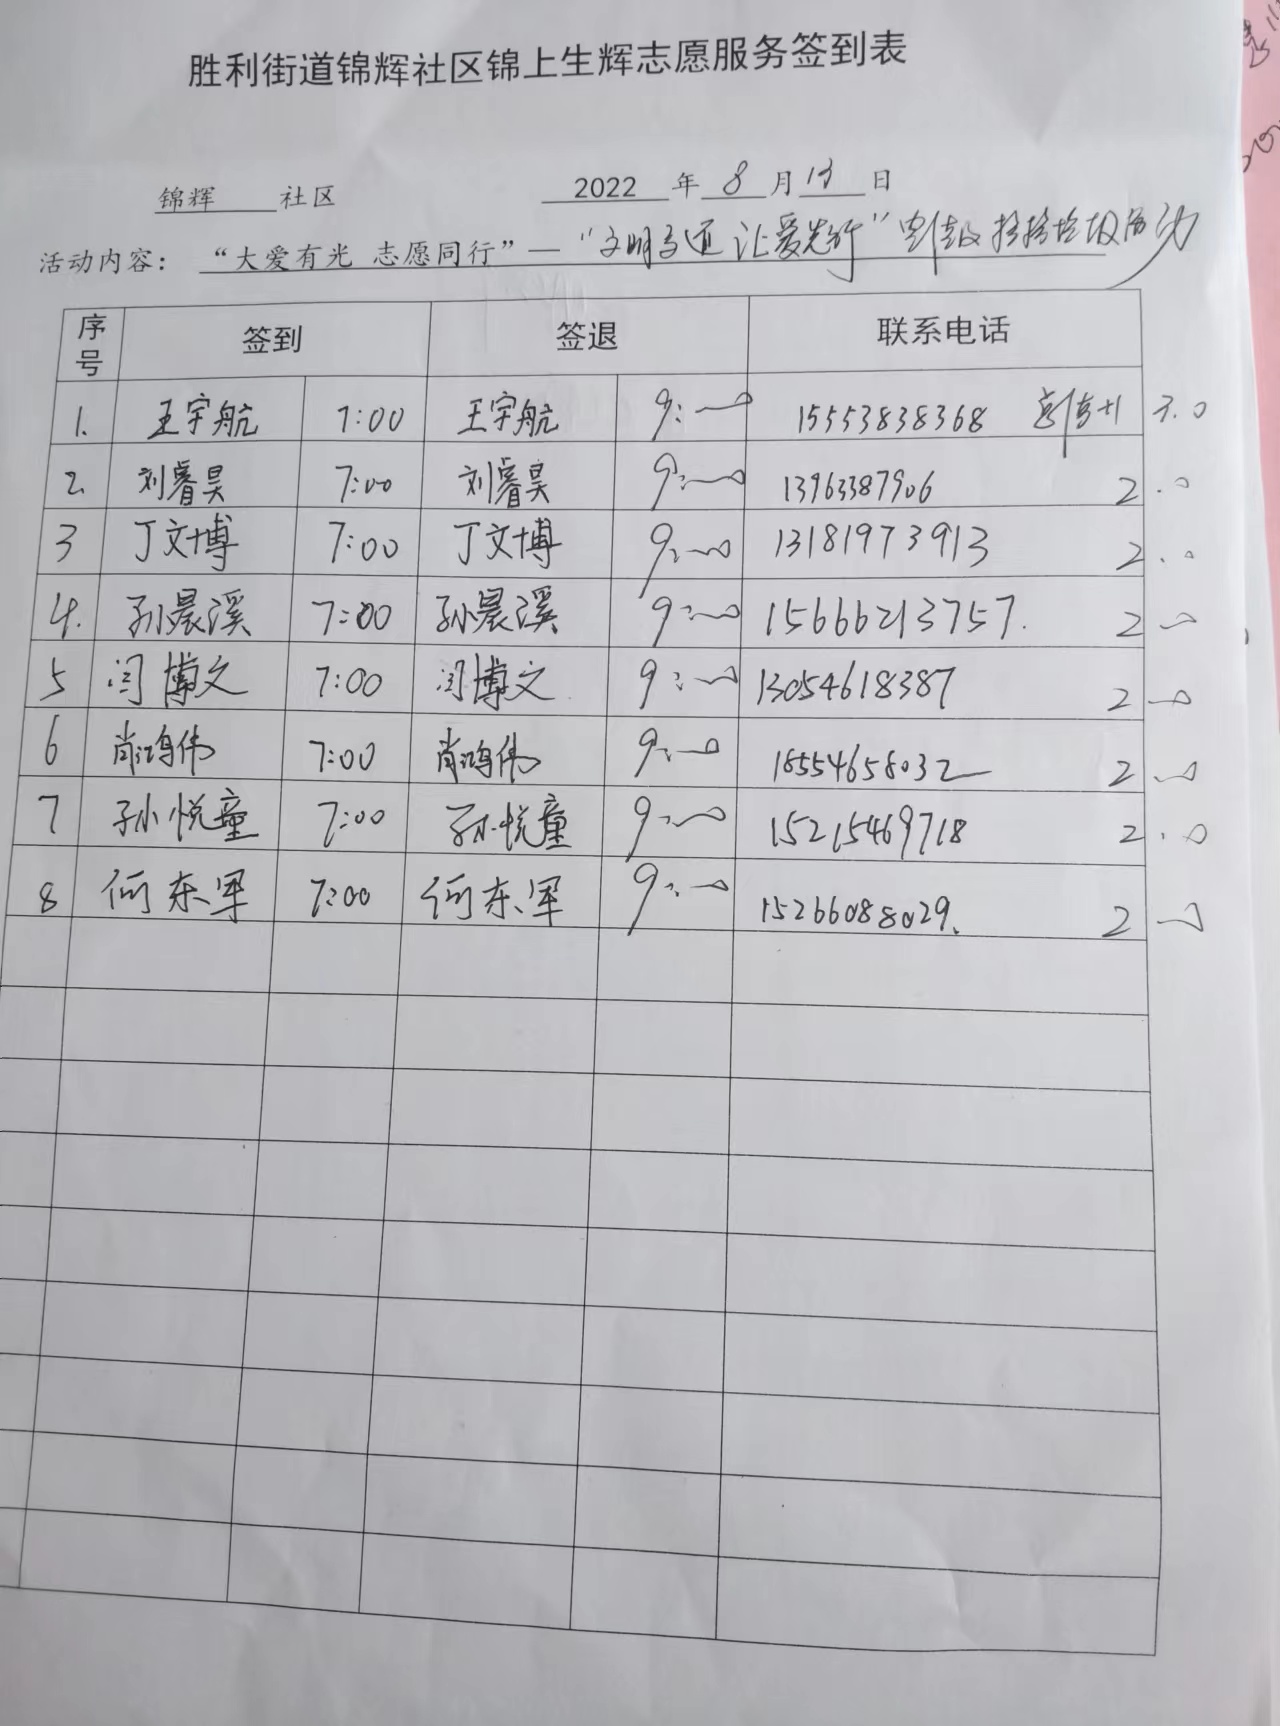 胜利街道锦辉社区锦上生辉志愿服务签到表
锦辉 社区 2022 年 8 月 13 日
活动内容： “大爱有光 志愿同行”—“文明 让爱先行” 捡拾垃圾活动
序号 签到 签退 联系电话
1. 王宇航 7:00 王宇航 9:00 15553838368 3.0
2. 刘睿昊 7:00 刘睿昊 9:00 13963387906 2.0
3 丁文博 7:00 丁文博 9:00 13181973913 2.0
4. 孙晨溪 7:00 孙晨溪 9:00 15666213757. 2.0
5 闫博文 7:00 闫博文 9:00 13054618387 2.0
6 肖鸿伟 7:00 肖鸿伟 9:00 18554658032 2.0
7 孙悦童 7:00 孙悦童 9:00 15215469718 2.0
8 何东军 7:00 何东军 9:00 15266088029. 2.0